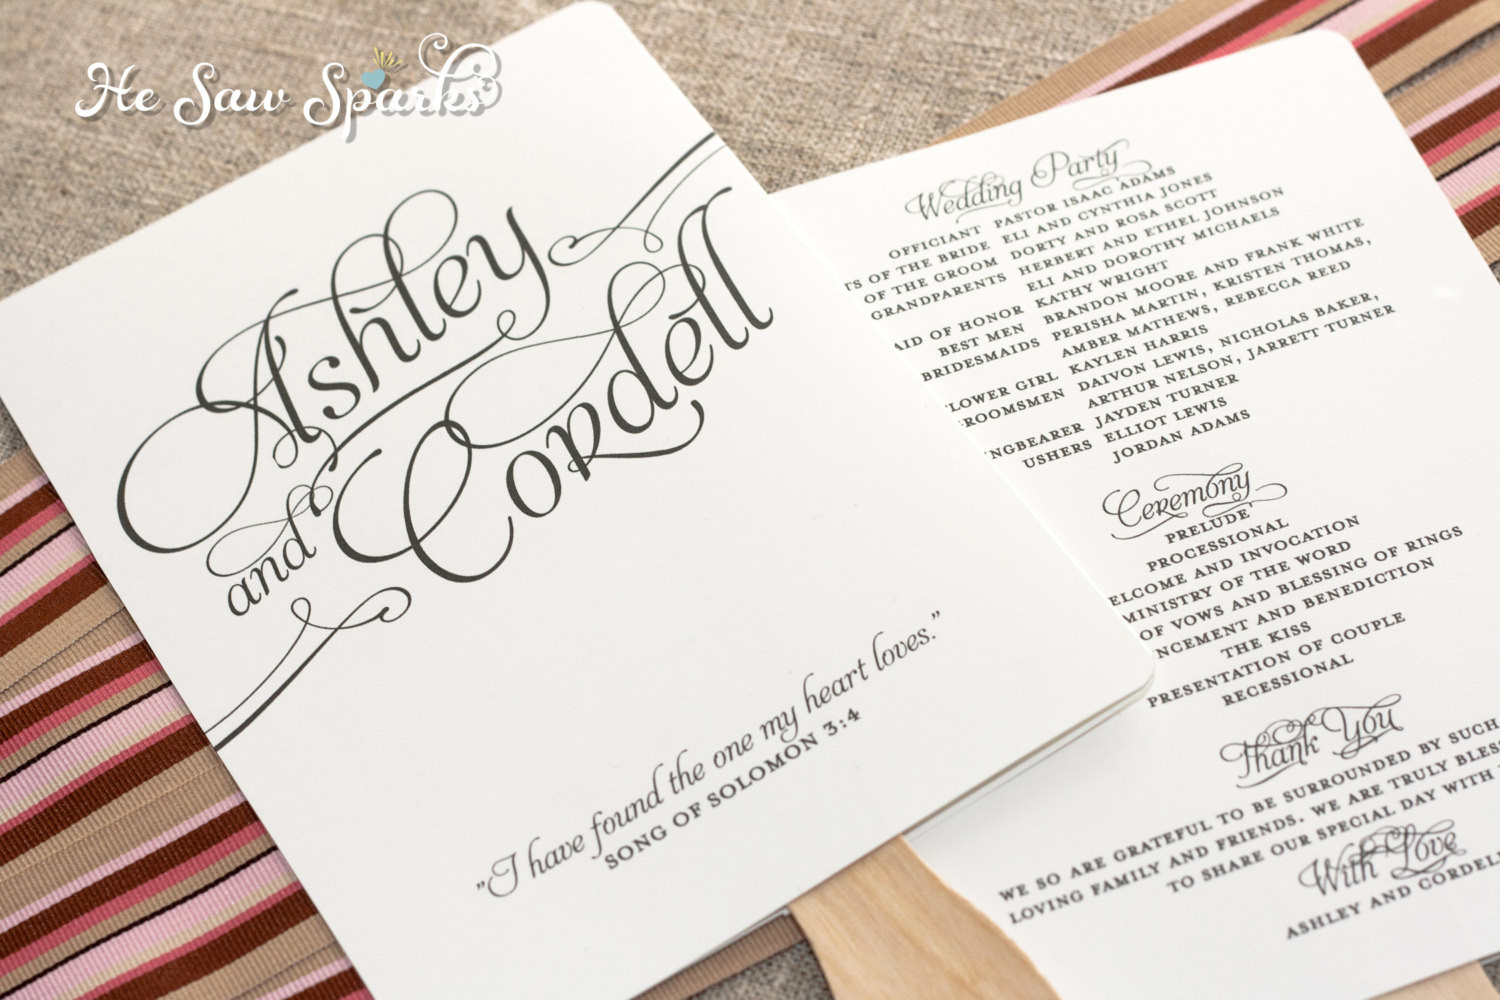 He Saw Sparks
Ashley
and Cordell
"I have found the one my heart loves."
SONG OF SOLOMON 3:4
Wedding Party
OFFICIANT PASTOR ISAAC ADAMS
TS OF THE BRIDE ELI AND CYNTHIA JONES
OF THE GROOM DORTY AND ROSA SCOTT
GRANDPARENTS HERBERT AND ETHEL JOHNSON
ELI AND DOROTHY MICHAELS
AID OF HONOR KATHY WRIGHT
BEST MEN BRANDON MOORE AND FRANK WHITE
BRIDESMAIDS PERISHA MARTIN, KRISTEN THOMAS,
AMBER MATHEWS, REBECCA REED
LOWER GIRL KAYLEN HARRIS
ROOMSMEN DAIVON LEWIS, NICHOLAS BAKER,
ARTHUR NELSON, JARRETT TURNER
NGBEARER JAYDEN TURNER
USHERS ELLIOT LEWIS
JORDAN ADAMS
Ceremony
PRELUDE
PROCESSIONAL
ELCOME AND INVOCATION
MINISTRY OF THE WORD
OF VOWS AND BLESSING OF RINGS
NCEMENT AND BENEDICTION
THE KISS
PRESENTATION OF COUPLE
RECESSIONAL
Thank You
WE SO ARE GRATEFUL TO BE SURROUNDED BY SUCH
LOVING FAMILY AND FRIENDS. WE ARE TRULY BLESS
TO SHARE OUR SPECIAL DAY WITH
With Love
ASHLEY AND CORDELL